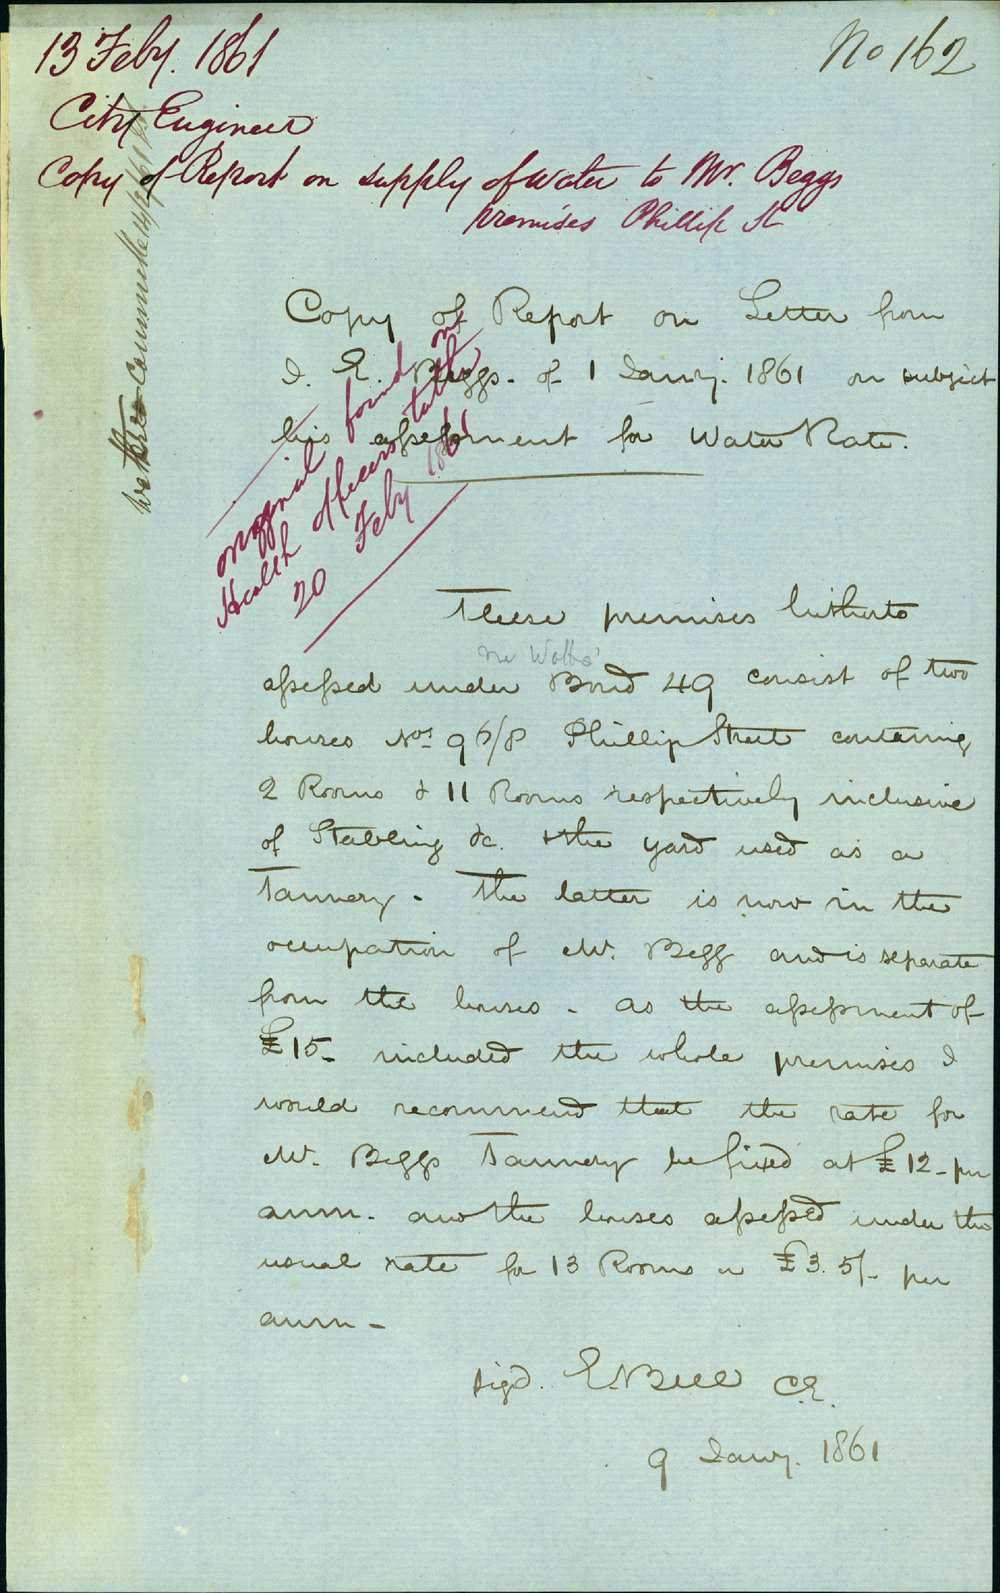 13 Feby. 1861
No 162
City Engineer
Copy of Report on supply of Water to Mr. Beggs
premises Phillip St
Copy of Report on Letter from
J. E. Beggs. of 1 Jany. 1861 on subject
his assessment for Water Rate.
original found out
Health officers table
20 Feby 1861
Committee
These premises hitherto
assessed under Bond 49 consist of two
houses Nos. 9 6/8 Phillip Street containing
2 Rooms & 11 Rooms respectively inclusive
of Stabling &c. & the yard used as a
Tannery. The latter is now in the
occupation of Mr. Begg and is separate
from the houses. As the assessment of
£15 included the whole premises I
would recommend that the rate for
Mr. Beggs Tannery be fixed at £12 - per
ann. and the houses assessed under the
usual rate for 13 Rooms is £3.5/- per
ann -
sigd. E. Bell C.E.
9 Jany. 1861